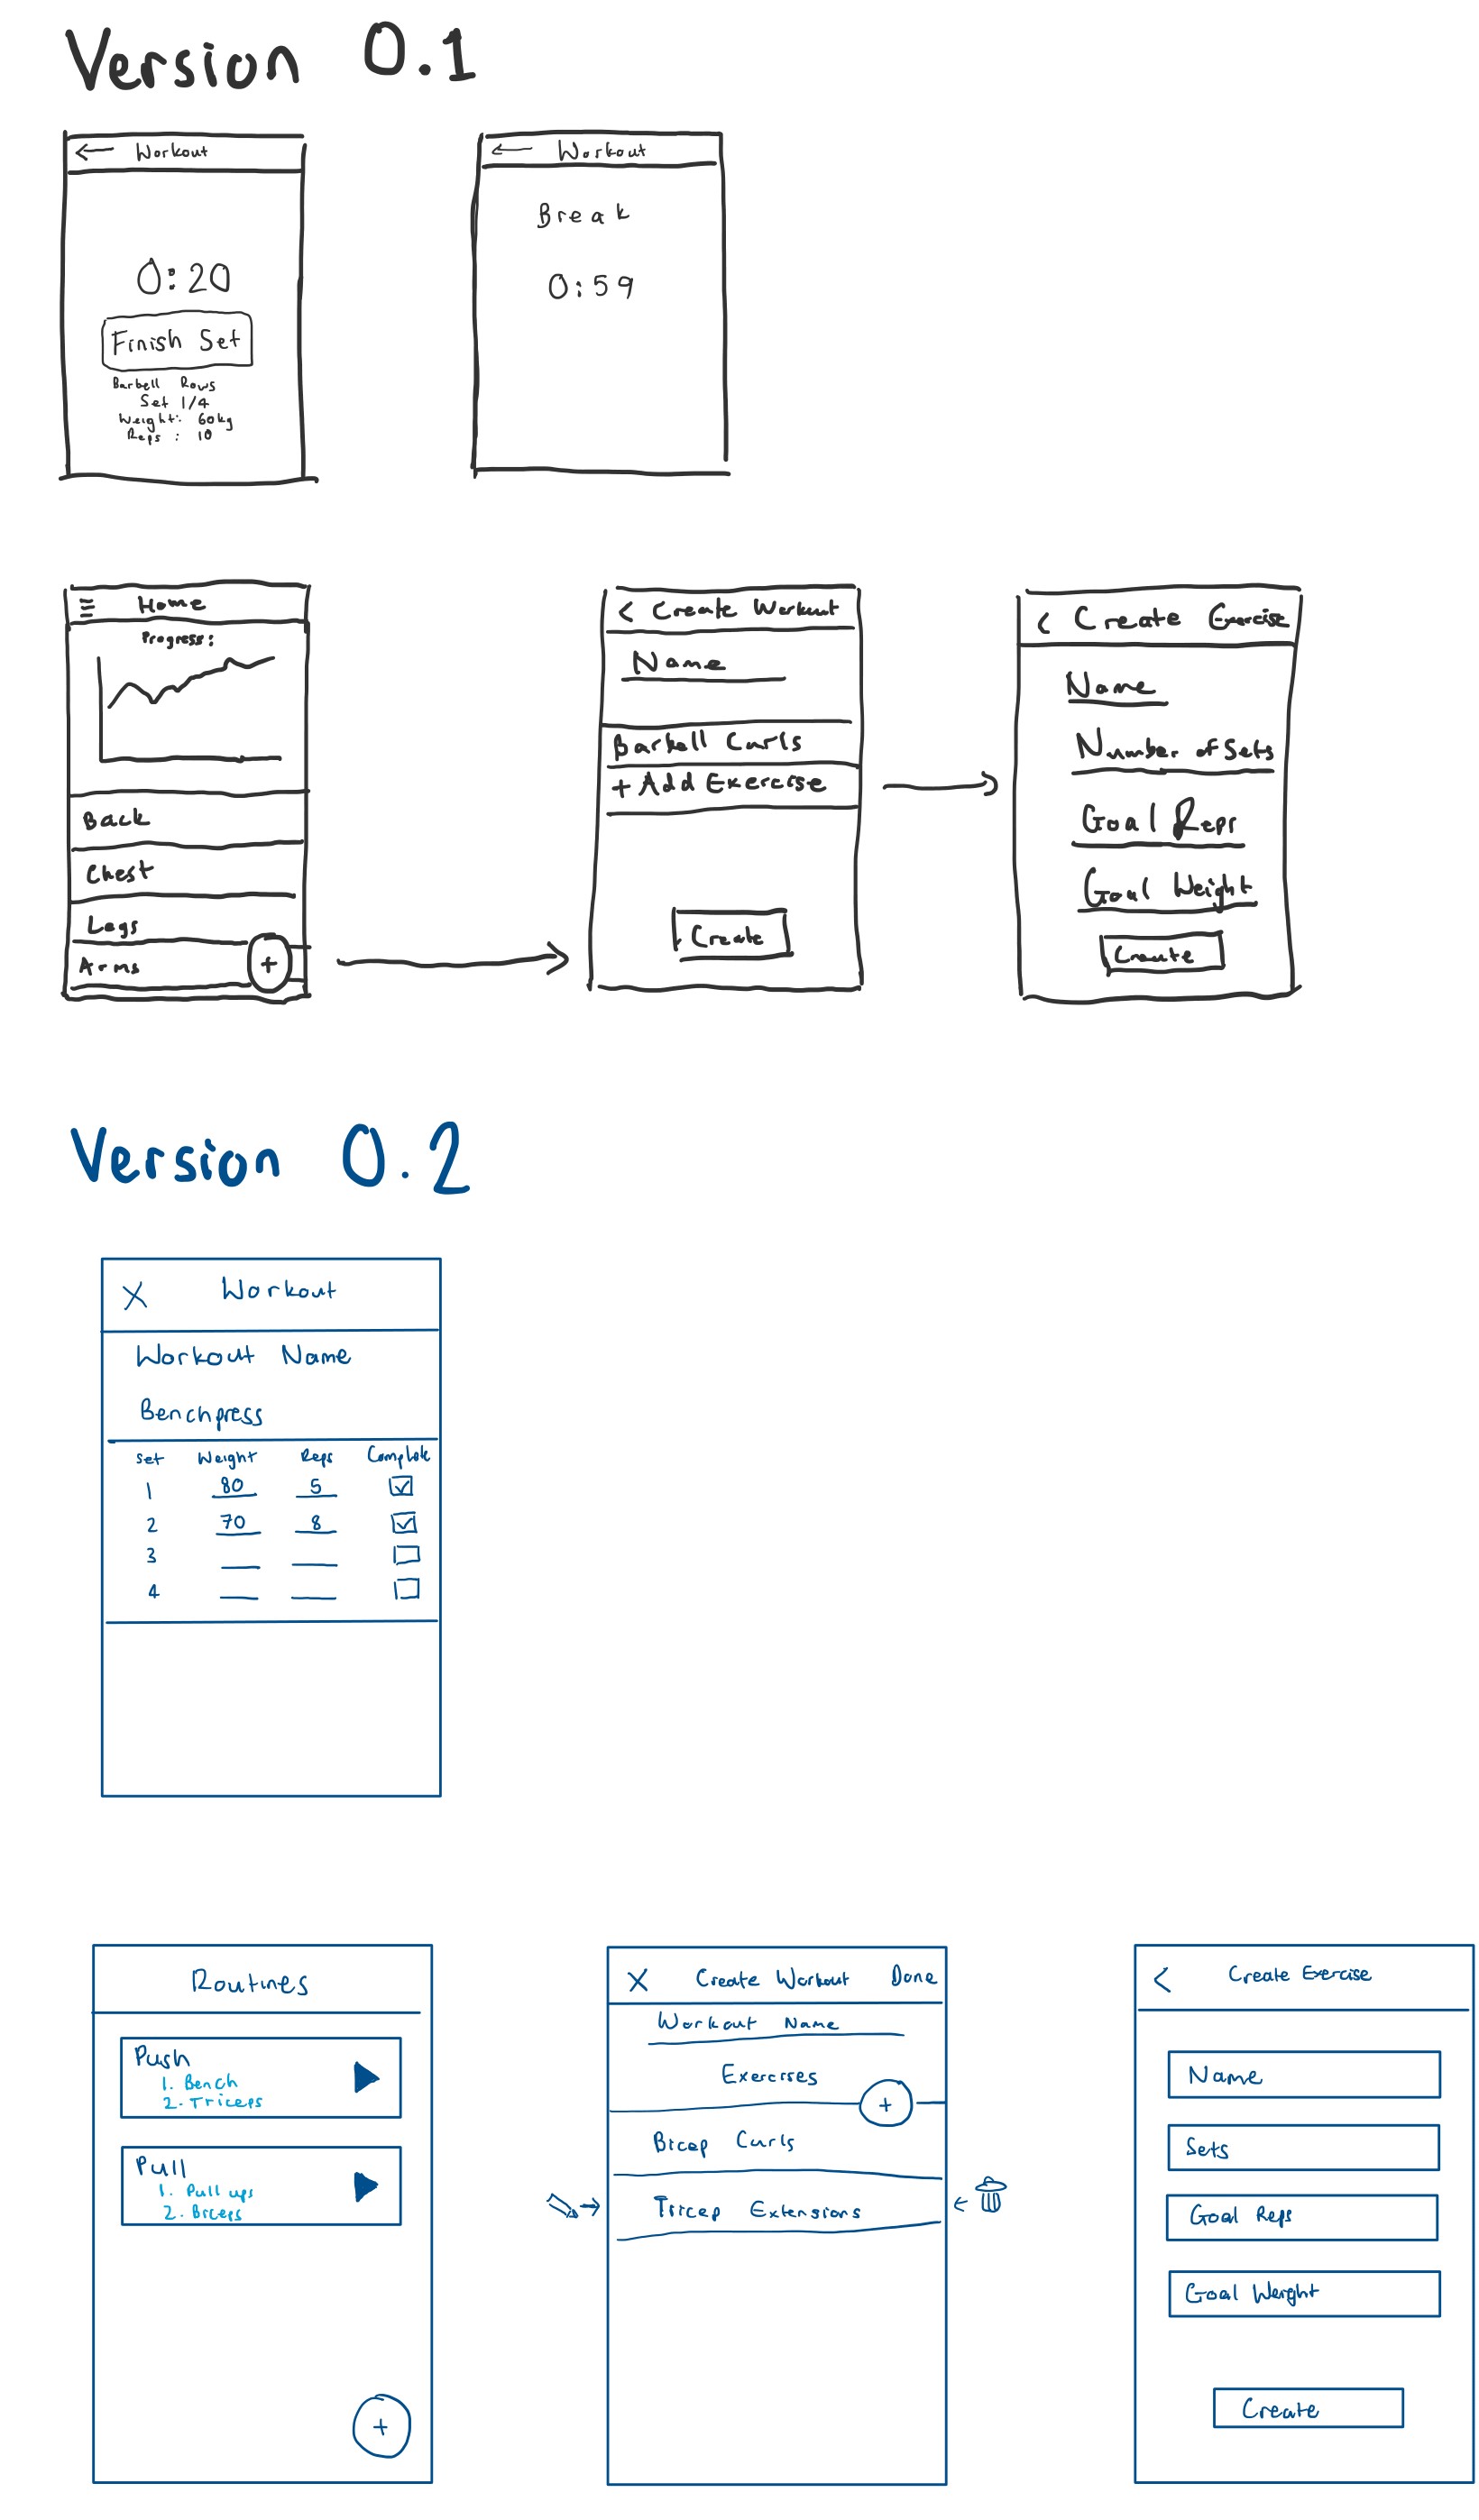 Version 0.1
← Workout
0:20
Finish Set
Barbell Rows
Set 1/4
Weight: 60kg
Reps : 10
← Workout
Break
0:59
Home
Progress:
Back
Chest
Legs
Arms +
< Create Workout
Name
Barbell Curls
+ Add Exercise
Create
< Create Exercise
Name
Number of Sets
Goal Reps
Goal Weight
Create
Version 0.2
X Workout
Workout Name
Benchpress
Set Weight Reps Complete
1 80 5
2 70 8
3
4
Routines
Push
1. Bench
2. Triceps
Pull
1. Pull ups
2. Biceps
+
X Create Workout Done
Workout Name
Exercises
+
Bicep Curls
Tricep Extensions
< Create Exercise
Name
Sets
Goal Reps
Goal Weight
Create